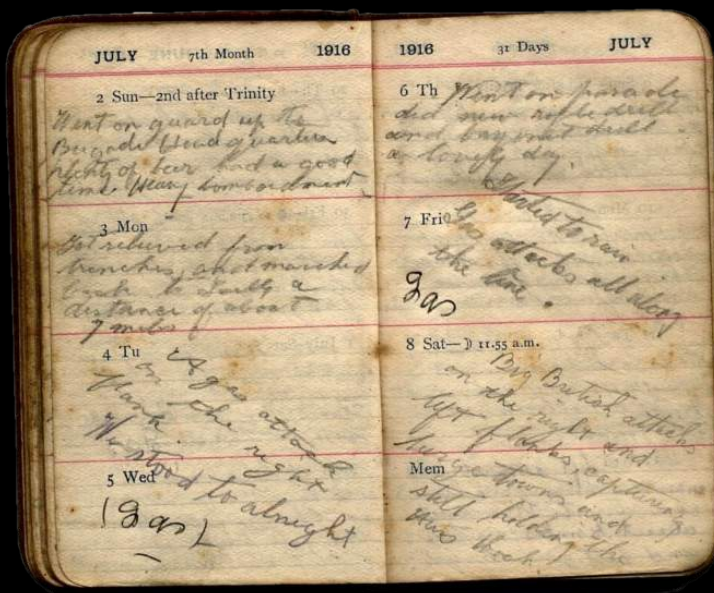 JULY 7th Month 1916
2 Sun—2nd after Trinity
Went on guard up to
Brigade Head quarters
plenty of beer had a good
time Heavy bombardment
3 Mon
Got relieved from
trenches, and marched
back to a
distance of about
7 miles
4 Tu
A gas attack
on the right
flank.
We stood to alnight
5 Wed
(Gas)
1916 31 Days JULY
6 Th
Went on parade
did new rifle drill
and bayonet drill
a lovely day.
7 Fri
Started to rain
Gas attacks all along
the line.
Gas
8 Sat—☽ 11.55 a.m.
Big British attacks
on the right and
left flanks, capturing
large towns and
Mem
still holding the